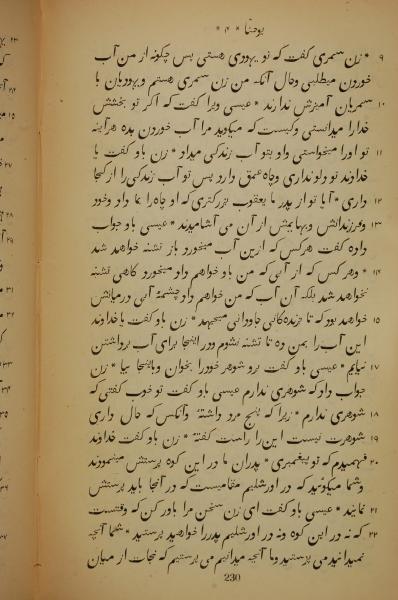 یوحنا * ۴ *
۹ * زن سمری گفت که تو یهودی هستی پس چگونه از من آب
خوردن میطلبی وحال آنکه من زن سمری هستم ویهودیان با
۱۰ سمریان آمیزش ندارند * عیسی ویرا گفت که اگر تو بخشش
خدارا میدانستی وکیست که میگوید مرا آب خوردن بده هرآینه
۱۱ تو اورا میخواستی واو بتو آب زندگی میداد * زن باو گفت یا
خداوند تو دلو نداری وچاه عمیق دارد پس تو آب زندگی را از کجا
۱۲ داری * آیا تو از پدر ما یعقوب بزرگتری که او چاه را بما داد وخود
۱۳ وفرزندانش وبهایمش از آن می آشامیدند * عیسی باو جواب
داده گفت هرکس که ازین آب میخورد باز تشنه خواهد شد
۱۴ * وهرکس که از آبی که من باو خواهم داد میخورد گاهی تشنه
نخواهد شد بلکه آن آب که من خواهم داد چشمهٔ آبی درمیانش
۱۵ خواهد بود که تا زندگانی جاودانی میجهد * زن باو گفت یا خداوند
این آب را بمن ده تا تشنه نشوم ودر اینجا برای آب برداشتن
۱۷ نیایم * عیسی باو گفت برو شوهر خودرا بخوان وباینجا بیا * زن
جواب داد که شوهری ندارم عیسی باو گفت تو خوب گفتی که
۱۸ شوهری ندارم * زیرا که پنج مرد داشتهٔ وآنکس که حال داری
۱۹ شوهرت نیست این را راست گفتهٔ * زن باو گفت خداوند
۲۰ فهمیدم که تو پیغمبری * پدران ما در این کوه پرستش مینمودند
وشما میگوئید که در اورشلیم مقامیست که در آنجا باید پرستش
۲۱ نمایند * عیسی باو گفت ای زن سخن مرا باور کن که وقتیست
۲۲ که نه در این کوه ونه در اورشلیم پدررا خواهید پرستید * شما آنچه
نمیدانید می پرستید وما آنچه میدانیم می پرستیم که نجات از میان
230